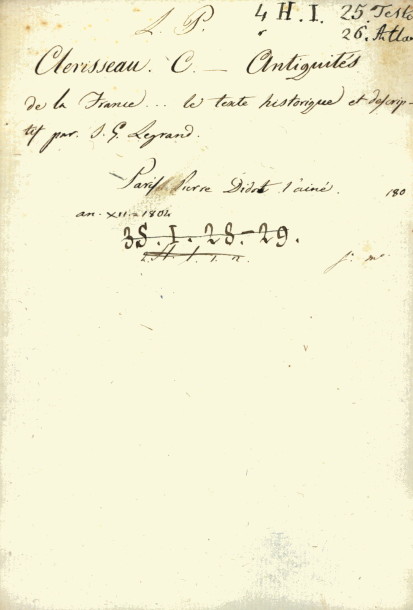 L. P. 4 H. I. 25. Testo
26. Atla
Clerisseau. C. — Antiquités
de la France... le texte historique et descrip-
tif par J. G. Legrand.
Paris Pierre Didot l'ainé. 180
an. XII = 1804
35. I. 28.-29.